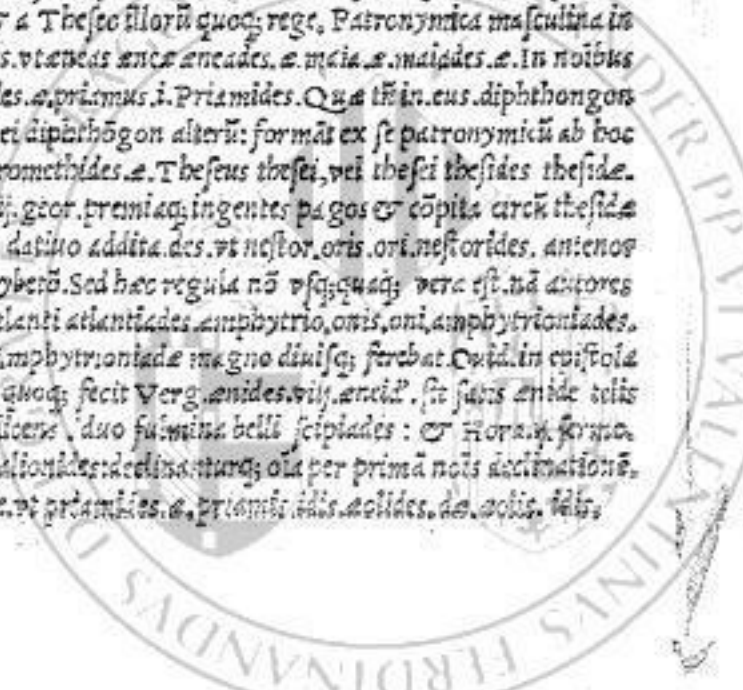 r a Theſeo illorū quoq; rege. Patronymica maſculina in
s. vt æneas æneæ æneades. æ. maia. æ. maiades æ. In noībus
les. æ. priamus. i. Priamides. Quæ tn̄ in. eus. diphthongon
ei diphthōgon alterū: formāt ex ſe patronymicū ab hoc
romethides. æ. Theſeus theſei, vel theſei theſides theſidæ.
ij. geor. premiaq; ingentes pagos & cōpita circū theſidæ
datiuo addita. des. vt neſtor. oris. ori. neſtorides. antenor
Sed hæc regula nō vſq;quaq; vera eſt. nā autores
lanti atlantiades. amphytrio, onis, oni, amphytrioniades.
mphytrioniadæ magno diuiſq; ferebat. Ouid. in epiſtola
quoq; fecit Verg. ænides. viij. æneid. ſit ſatis ænide telis
licens. duo fulmina belli ſcipiades: & Hora. ſermo.
alionides: declinanturq; oīa per primā noīs declinationē.
e. vt priamides. æ. priamis idis. æolides. dæ. æolis. idis.
DER PP VI VALENTINVS FERDINANDVS D